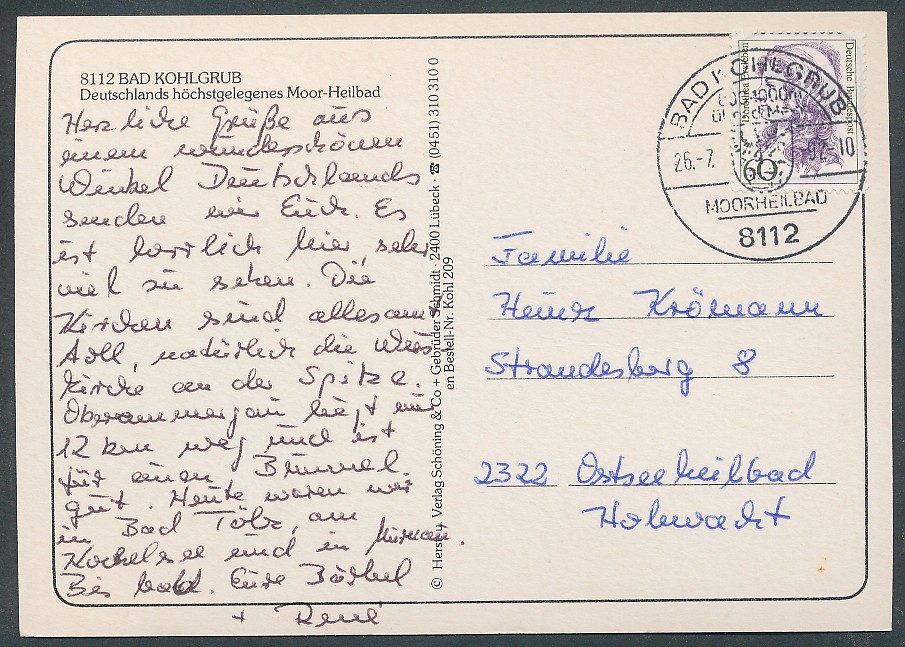 8112 BAD KOHLGRUB
Deutschlands höchstgelegenes Moor-Heilbad
Herzliche Grüße aus
einem wunderschönen
Winkel Deutschlands
senden wir Euch. Es
ist herrlich hier sehr
viel zu sehen. Die
Kirchen sind allesamt
toll, natürlich die Wies
kirche an der Spitze.
Oberammergau liegt nur
12 km weg und ist
für einen Bummel
gut. Heute waren wir
in Bad Tölz, am
Kochelsee und in Murnau.
Bis bald. Eure Bärbel
+ René
© Herst. u. Verlag Schöning & Co + Gebrüder Schmidt · 2400 Lübeck · ☎ (0451) 310 310 0
en Bestell-Nr. Kohl 209
Deutsche Bundespost
Dorothea Erxleben
60
BAD KOHLGRUB
26.-7. 92-10
MOORHEILBAD
8112
Familie
Heinz Krömann
Strandesberg 8
2322 Ostseeheilbad
Hohwacht